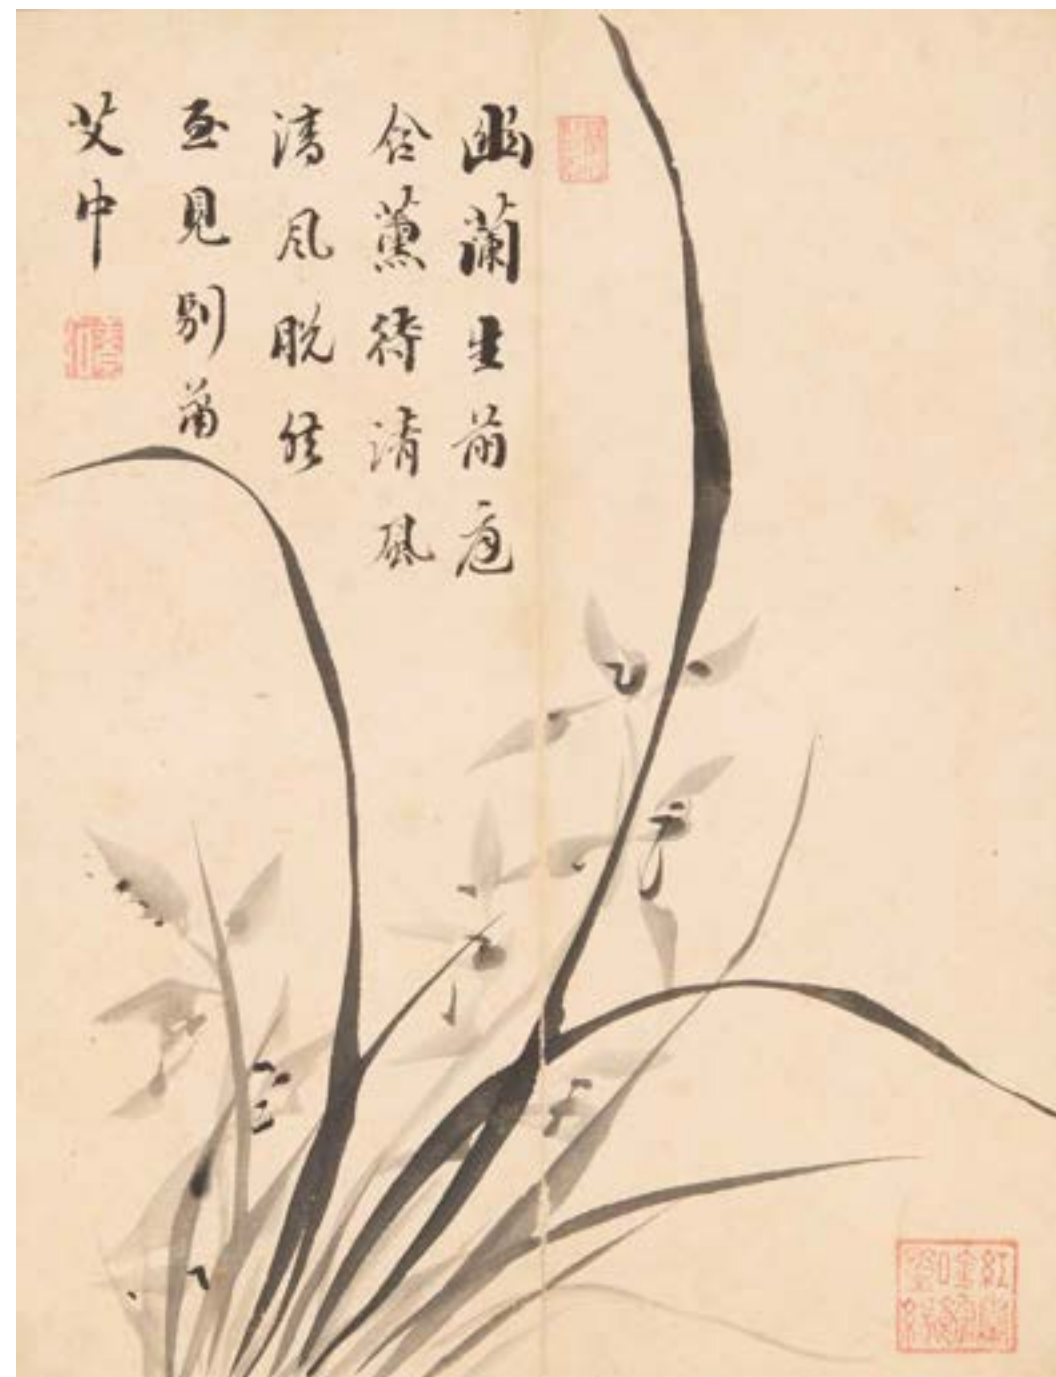 幽蘭生前庭
含薰待清風
清風脫然
至見別蕭
艾中